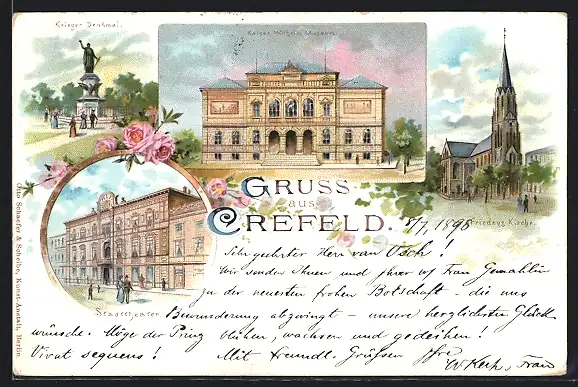 Krieger Denkmal.
Kaiser Wilhelm Museum
GRUSS
aus
CREFELD.
Friedens Kirche.
Stadttheater.
Otto Schaefer & Scheibe, Kunst-Anstalt, Berlin.
8/7 1896
Sehr geehrter Herr van Osch!
Wir senden Ihnen und Ihrer Frau Gemahlin
zu der neuesten frohen Botschaft - die uns
Bewunderung abzwingt - unsere herzlichsten Glück
wünsche. Möge der Prinz blühen, wachsen und gedeihen!
Vivat sequens! Mit freundl. Grüssen Ihre
Frau